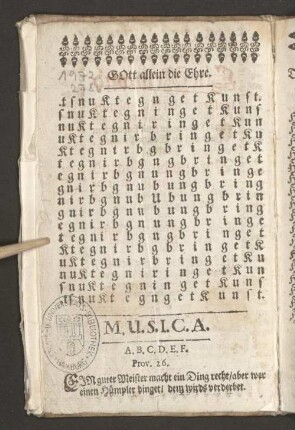 1972
278
GOtt allein die Ehre.
.t s n u K t e g n g e t K u n s t.
s n u K t e g n i n g e t K u n s
n u K t e g n i r i n g e t K u n
u K t e g n i r b r i n g e t K u
K t e g n i r b g b r i n g e t K
t e g n i r b g n g b r i n g e t
e g n i r b g n u n g b r i n g e
g n i r b g n u b u n g b r i n g
n i r b g n u b U b u n g b r i n
g n i r b g n u b u n g b r i n g
e g n i r b g n u n g b r i n g e
t e g n i r b g n g b r i n g e t
K t e g n i r b g b r i n g e t K
u K t e g n i r b r i n g e t K u
n u K t e g n i r i n g e t K u n
s n u K t e g n i n g e t K u n s
.t s n u K t e g n g e t K u n s t.
M, U. S. I. C. A.
A, B, C, D, E, F.
Prov. 26.
EIN guter Meister macht ein Ding recht/ aber wer
einen Hümpler dinget/ dem wirds verderbet.